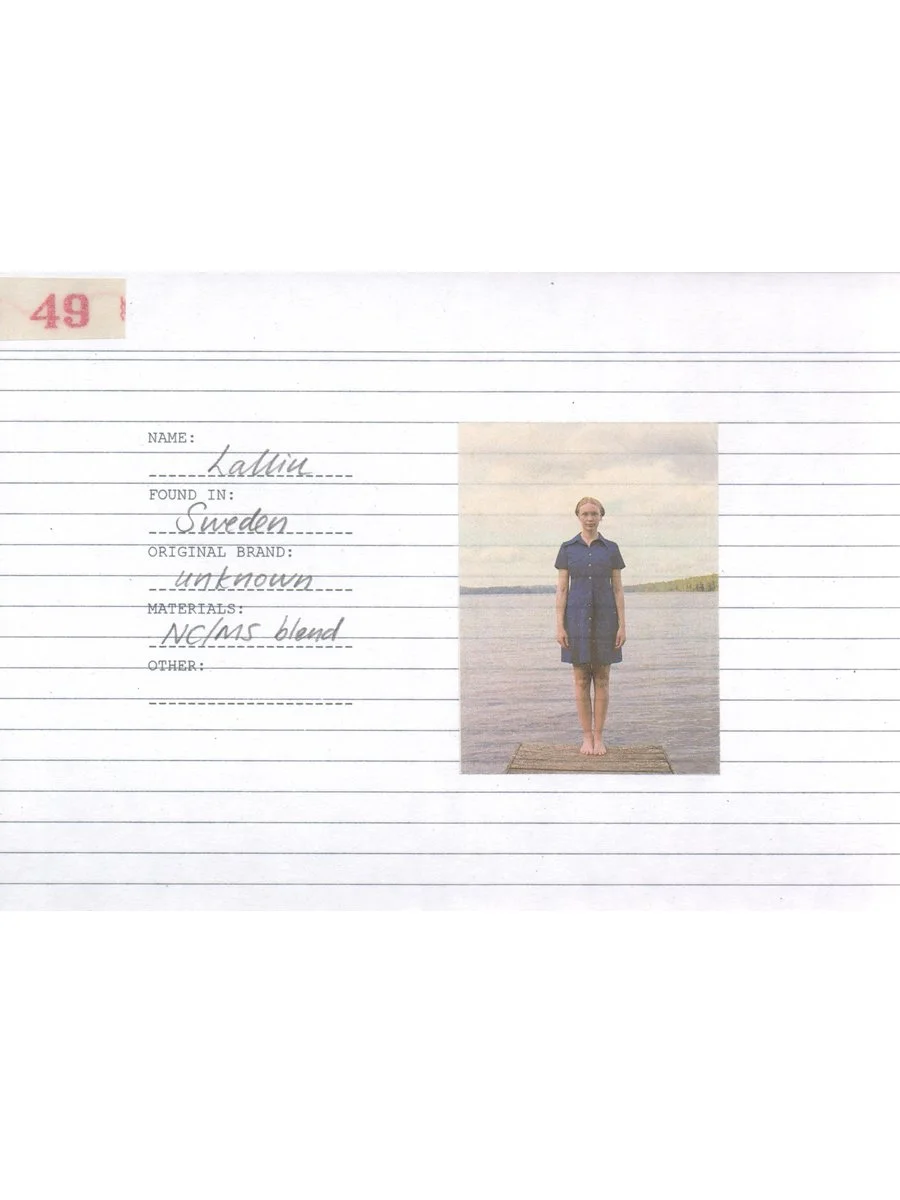 49
NAME:
Lallin
FOUND IN:
Sweden
ORIGINAL BRAND:
unknown
MATERIALS:
NC/MS blend
OTHER: